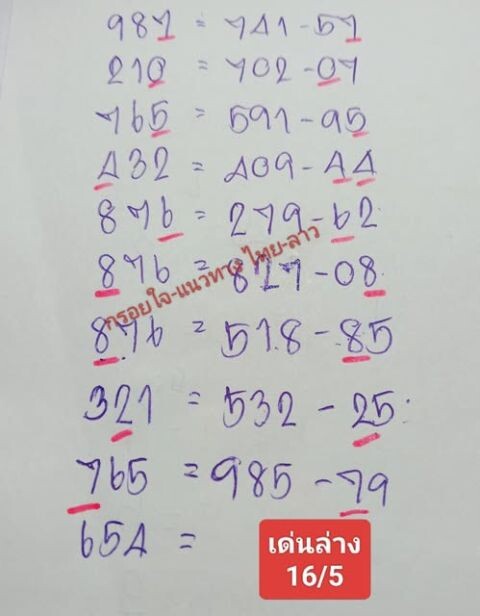 987 = 741-57
210 = 702-07
765 = 591-95
432 = 409-44
876 = 279-62
876 = 827-08
กรอยใจ-แนวทาง ไทย-ลาว
876 = 518-85
321 = 532-25
765 = 985-79
654 =
เด่นล่าง
16/5